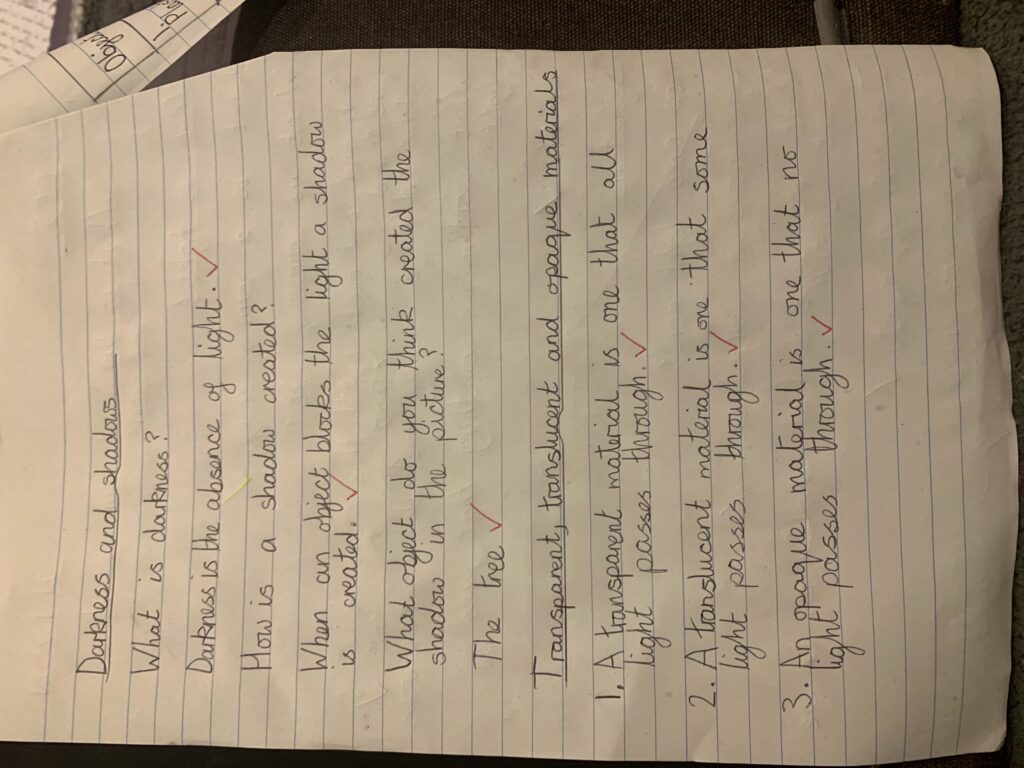 Darkness and shadows
What is darkness?
Darkness is the absence of light.
How is a shadow created?
When an object blocks the light a shadow
is created.
What object do you think created the
shadow in the picture?
The tree
Transparent, translucent and opaque materials
1. A transparent material is one that all
light passes through.
2. A translucent material is one that some
light passes through.
3. An opaque material is one that no
light passes through.
Object